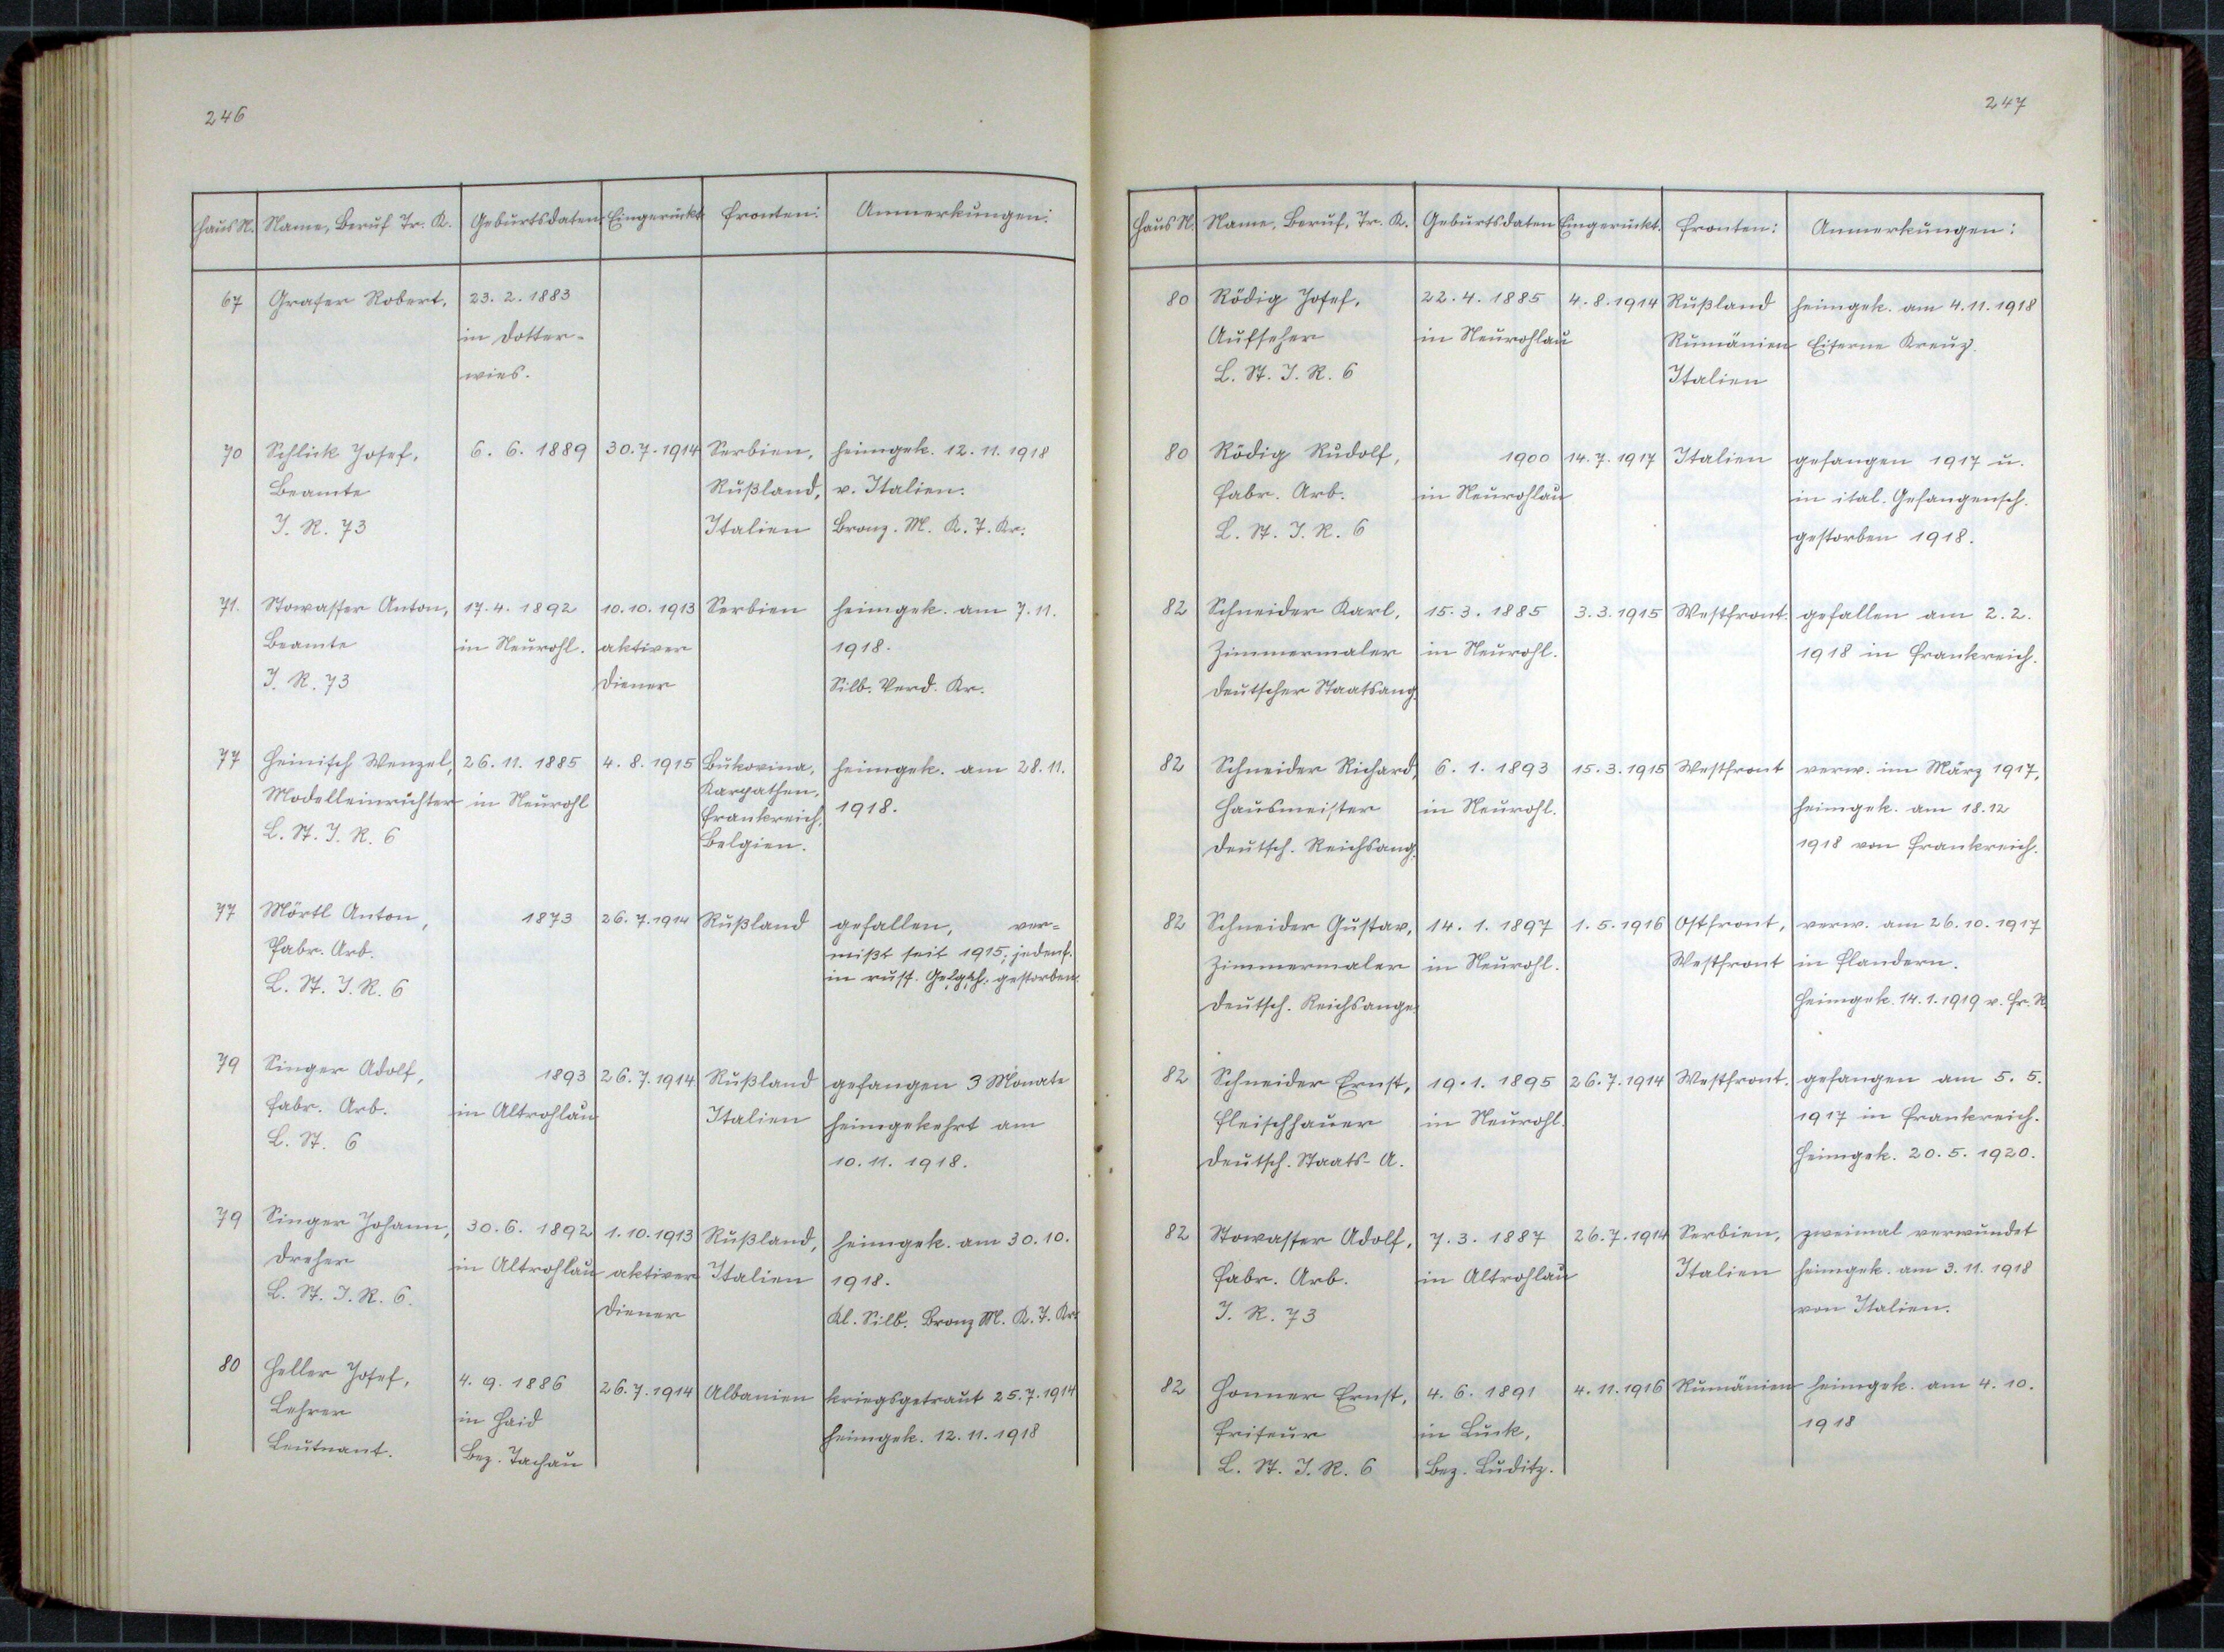 246
Haus N. Name, Beruf Tr. K. Geburtsdaten Eingerückt Fronten: Anmerkungen:
67 Graser Robert, 23. 2. 1883
in Dotter-
wies.
70 Schlick Josef, 6. 6. 1889 30. 7. 1914 Serbien, heimgek. 12. 11. 1918
Beamte Rußland, v. Italien.
I. R. 73 Italien Bronz. M. K. T. Kr.
71. Stowasser Anton, 17. 4. 1892 10. 10. 1913 Serbien heimgek. am 7. 11.
Beamte in Neurohl. aktiver 1918.
I. R. 73 Diener Silb. Verd. Kr.
77 Heinisch Wenzel, 26. 11. 1885 4. 8. 1915 Bukovina, heimgek. am 28. 11.
Modelleinrichter in Neurohl Karpathen, 1918.
L. St. I. R. 6 Frankreich,
Belgien.
77 Mörtl Anton, 1873 26. 7. 1914 Rußland gefallen, ver=
Fabr. Arb. mißt seit 1915; jedenf.
L. St. I. R. 6 in russ. Gefgsch. gestorben.
79 Singer Adolf, 1893 26. 7. 1914 Rußland gefangen 3 Monate
Fabr. Arb. in Altrohlau Italien heimgekehrt am
L. St. 6 10. 11. 1918.
79 Singer Johann, 30. 6. 1892 1. 10. 1913 Rußland, heimgek. am 30. 10.
Dreher in Altrohlau aktiver Italien 1918.
L. St. I. R. 6. Diener Kl. Silb. Bronz M. K. T. Kr.
80 Heller Josef, 4. 9. 1886 26. 7. 1914 Albanien kriegsgetraut 25. 7. 1914
Lehrer in Haid heimgek. 12. 11. 1918
Leutnant. Bez. Tachau
247
Haus N. Name, Beruf, Tr. K. Geburtsdaten Eingerückt. Fronten: Anmerkungen:
80 Rödig Josef, 22. 4. 1885 4. 8. 1914 Rußland heimgek. am 4. 11. 1918
Aufseher in Neurohlau Rumänien Eiserne Kreuz.
L. St. I. R. 6 Italien
80 Rödig Rudolf, 1900 14. 7. 1917 Italien gefangen 1917 u.
Fabr. Arb. in Neurohlau in ital. Gefangensch.
L. St. I. R. 6 gestorben 1918.
82 Schneider Karl, 15. 3. 1885 3. 3. 1915 Westfront. gefallen am 2. 2.
Zimmermaler in Neurohl. 1918 in Frankreich.
Deutscher Staatsang.
82 Schneider Richard, 6. 1. 1893 15. 3. 1915 Westfront verw. im März 1917,
Hausmeister in Neurohl. heimgek. am 18. 12
Deutsch. Reichsang. 1918 von Frankreich.
82 Schneider Gustav, 14. 1. 1897 1. 5. 1916 Ostfront, verw. am 26. 10. 1917
Zimmermaler in Neurohl. Westfront in Flandern.
Deutsch. Reichsange. Heimgek. 14. 1. 1919 v. Fr. R.
82 Schneider Ernst, 19. 1. 1895 26. 7. 1914 Westfront. gefangen am 5. 5.
Fleischhauer in Neurohl. 1917 in Frankreich.
Deutsch. Staats-A. Heimgek. 20. 5. 1920.
82 Stowasser Adolf, 7. 3. 1887 26. 7. 1914 Serbien, zweimal verwundet
Fabr. Arb. in Altrohlau Italien heimgek. am 3. 11. 1918
I. R. 73 von Italien.
82 Honner Ernst, 4. 6. 1891 4. 11. 1916 Rumänien heimgek. am 4. 10.
Friseur in Luck, 1918
L. St. I. R. 6 Bez. Luditz.